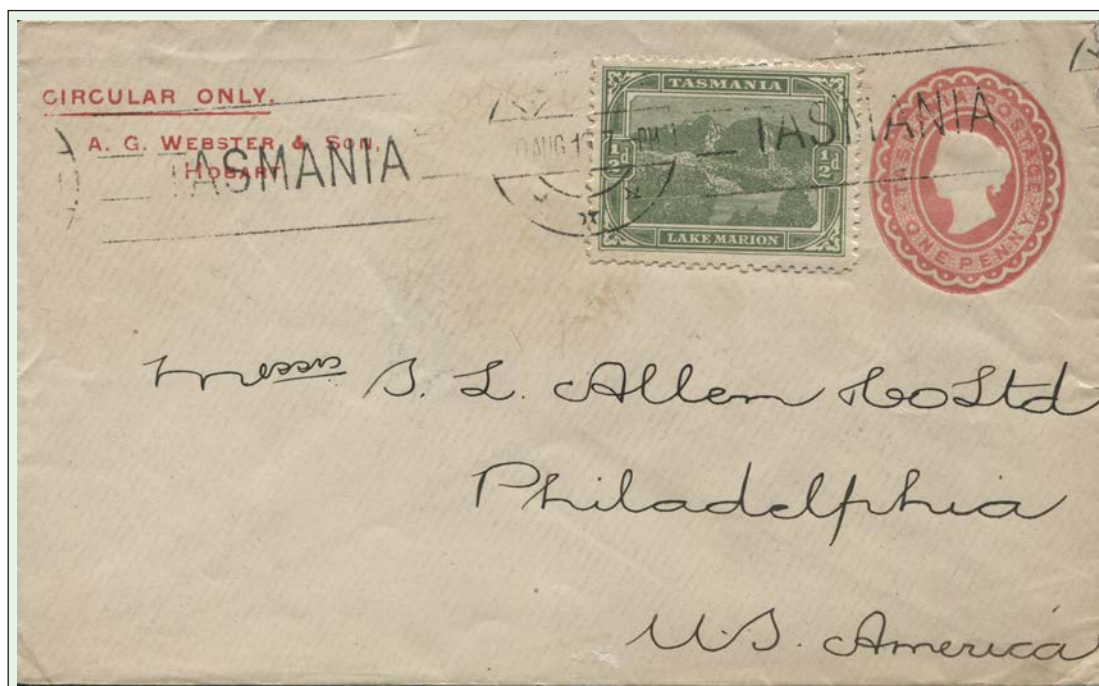 CIRCULAR ONLY,
A. G. WEBSTER & SON,
HOBART
TASMANIA
AUG 1
TASMANIA
TASMANIA
1/2d 1/2d
LAKE MARION
POSTAGE
ONE PENNY
Messrs S. L. Allen & Co Ltd
Philadelphia
U.S. America